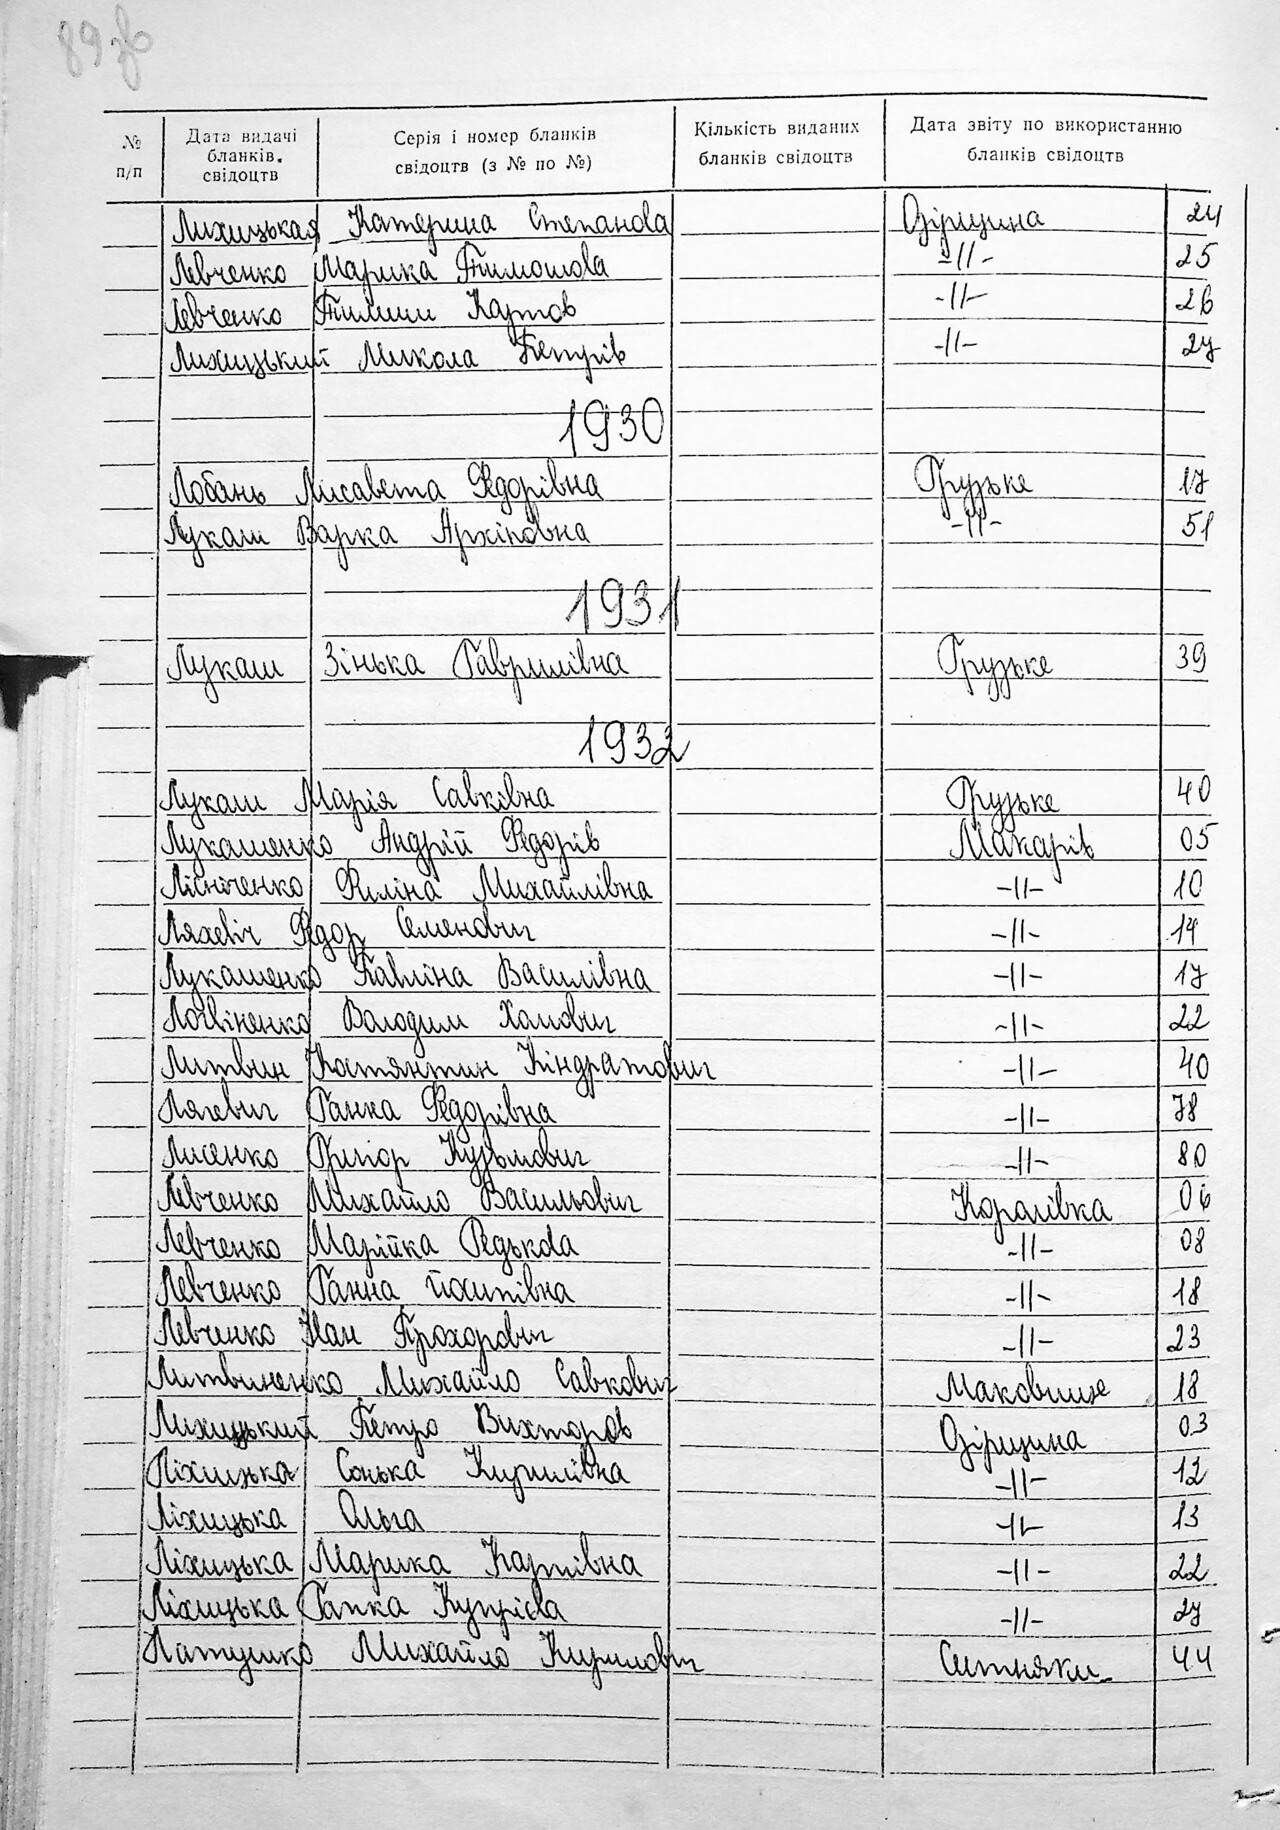 89 зв
№ п/п Дата видачі бланків свідоцтв Серія і номер бланків свідоцтв (з № по №) Кількість виданих бланків свідоцтв Дата звіту по використанню бланків свідоцтв
Лихицькая Катерина Степанова Озірщина 24
Левченко Марика Тимошова -//- 25
Левченко Тилиш Карпов -//- 26
Лихицький Микола Петрів -//- 27
1930
Лобань Лисавета Федорівна Грузьке 17
Лукаш Варка Архіповна -//- 51
1931
Лукаш Зінька Гаврилівна Грузьке 39
1932
Лукаш Марія Савківна Грузьке 40
Лукашенко Андрій Федорів Макарів 05
Лісніченко Філіна Михайлівна -//- 10
Ляхевіч Федор Семенович -//- 14
Лукашенко Павліна Василівна -//- 17
Логвіненко Володим Хамович -//- 22
Литвин Костянтин Кіндратович -//- 40
Ляхевич Ганка Федорівна -//- 78
Лисенко Григор Кузьмович -//- 80
Левченко Михайло Васильович Королівка 06
Левченко Марійка Федькова -//- 08
Левченко Ганна Йхитівна -//- 18
Левченко Іван Прохорович -//- 23
Литвиненко Михайло Савкович Маковище 18
Лихицький Петро Вихторов Озірщина 03
Ліхицька Сонька Кирилівна -//- 12
Ліхицька Ольга -//- 13
Ліхицька Марика Карпівна -//- 22
Ліхицька Гапка Купріева -//- 27
Латушко Михайло Кирилович Ситняки 44